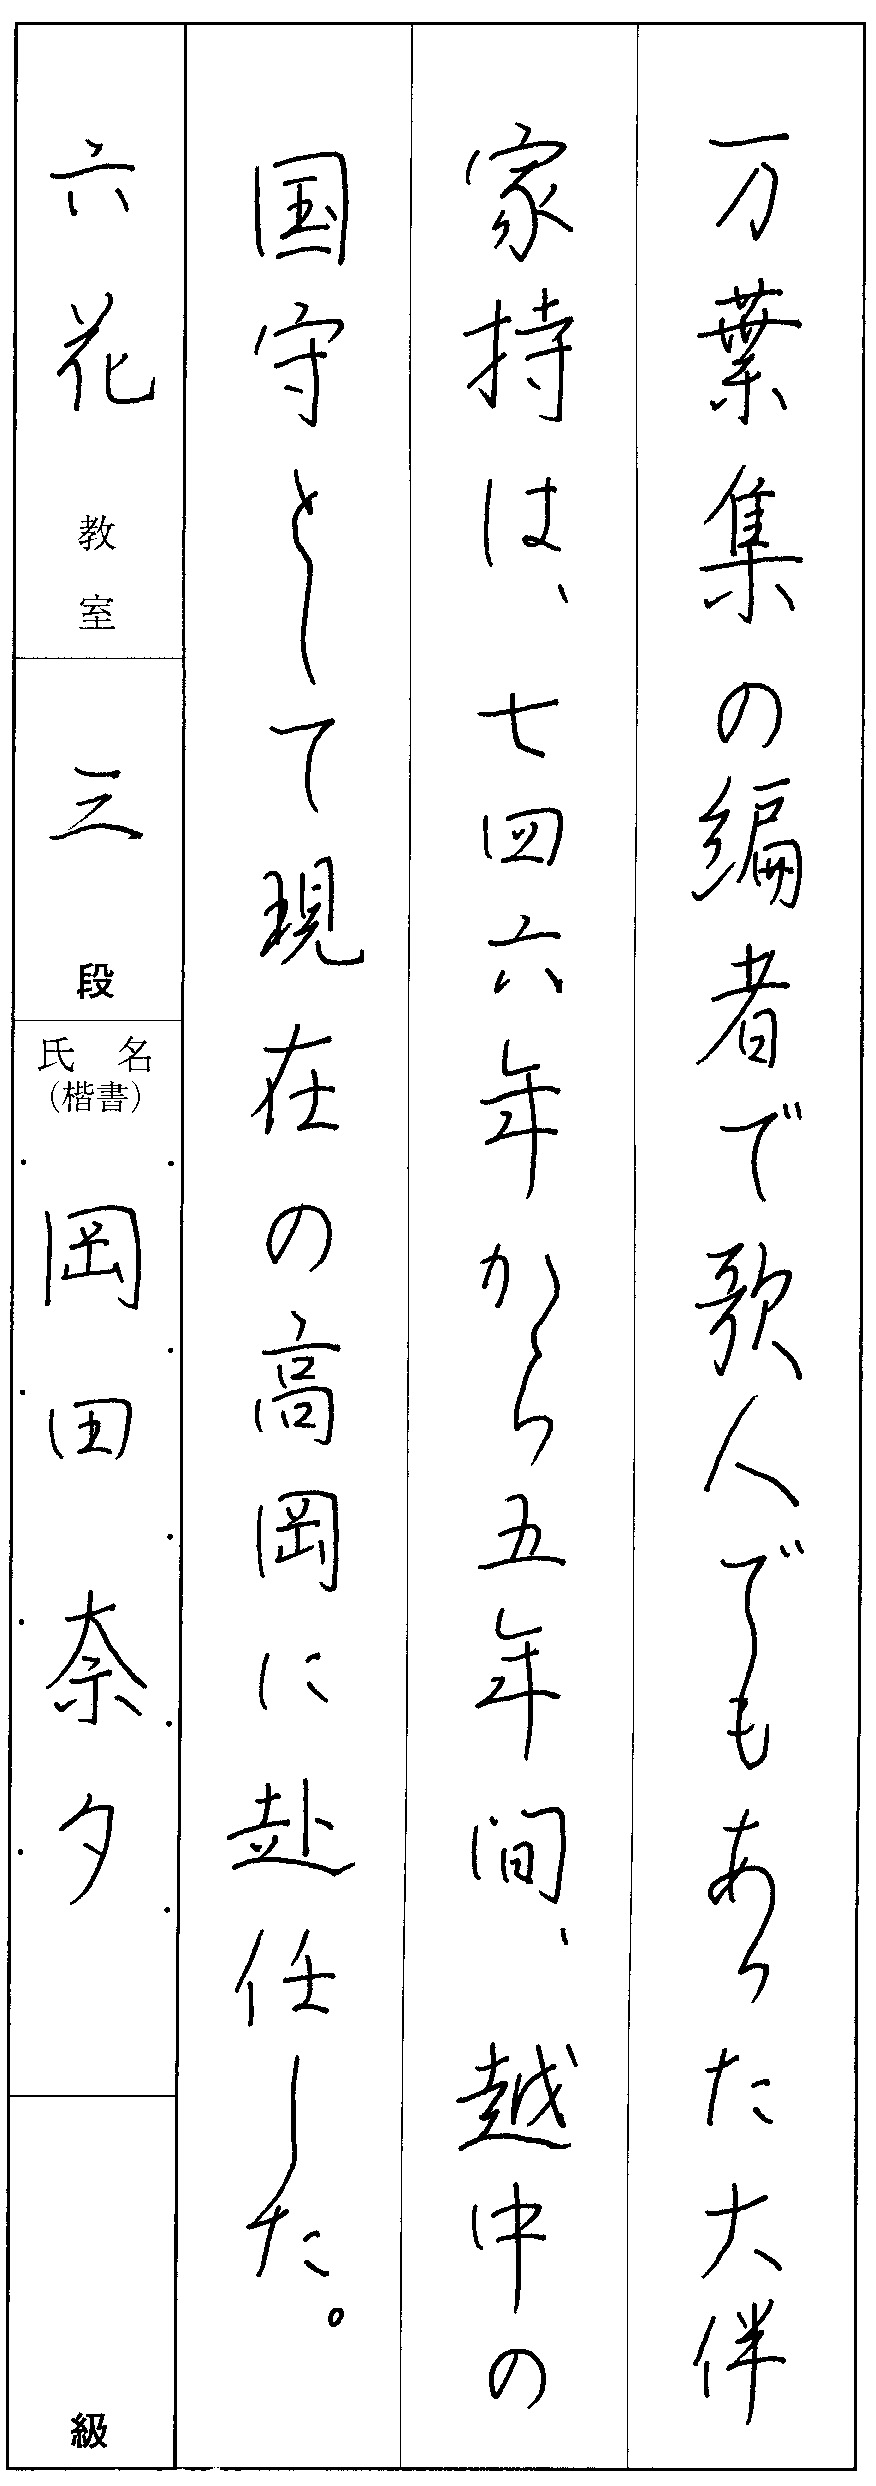 万葉集の編者で歌人でもあった大伴
家持は、七四六年から五年間、越中の
国守として現在の高岡に赴任した。
六花教室
三段
氏名
(楷書)
岡田奈夕
級